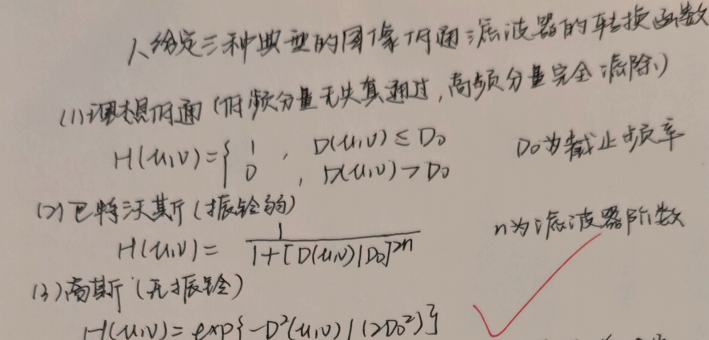 1、给定三种典型的图像低通滤波器的转换函数
(1)理想低通(低频分量无失真通过,高频分量完全滤除)
H(u,v)={ 1 , D(u,v)≤D₀
0 , D(u,v)>D₀ D₀为截止频率
(2)巴特沃斯(振铃弱)
H(u,v)= 1/(1+[D(u,v)/D₀]²ⁿ) n为滤波器阶数
(3)高斯(无振铃)
H(u,v)=exp{-D²(u,v)/(2D₀²)}